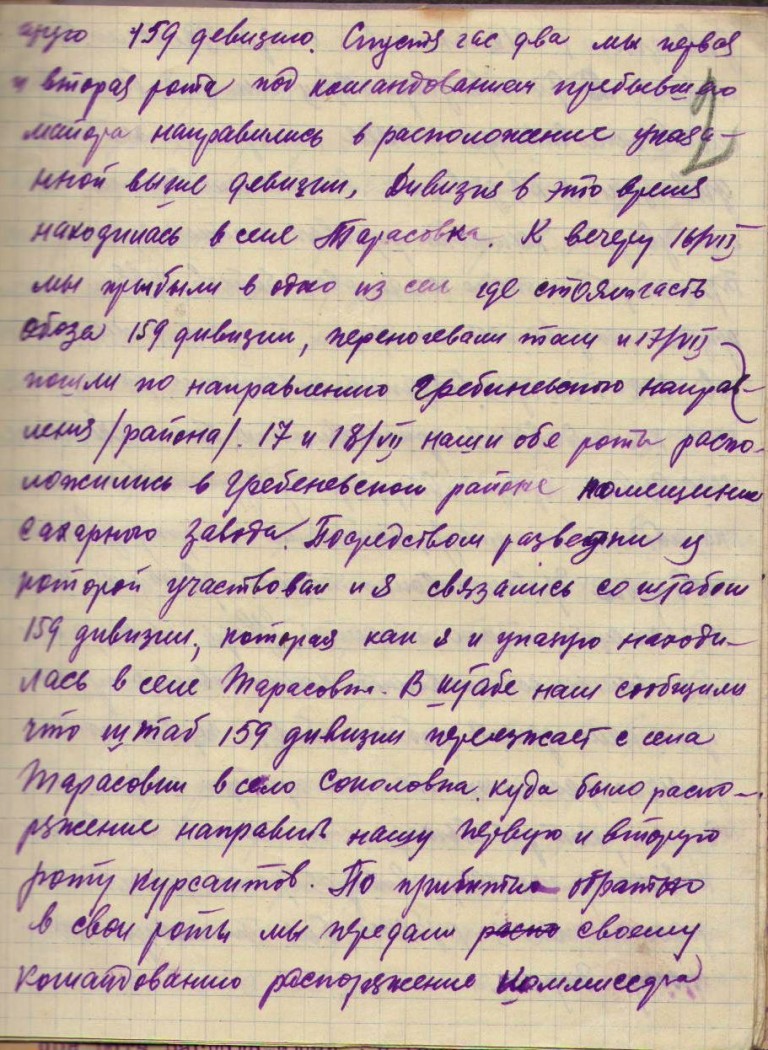 159 девизию. Спустя час два мы первая
и вторая рота под командованием пребывшего
майора направились в расположение указа-
нной выше девизии, Дивизия в это время
находилась в селе Тарасовка. К вечеру 16/VII
мы прибыли в одно из сел где стояли часть
обоза 159 дивизии, переночевали там и 17/VII
пошли по направлению Гребеневского направ-
ления /района/. 17 и 18/VII наши обе роты распо-
ложились в Гребеневском районе помещении
Сахарного Завода. Посредством разведки у
которой участвовал и я связались со штабом
159 дивизии, которая как я и укаzую находи-
лась в селе Тарасовки. В штабе нам сообщили
что штаб 159 дивизии переезжает с села
Тарасовки в село Соколовка, куда было распо-
ряжение направить нашу первую и вторую
роту курсантов. По прибытию обратно
в свои роты мы передали распо своему
командованию распоряжение Коммисара
2